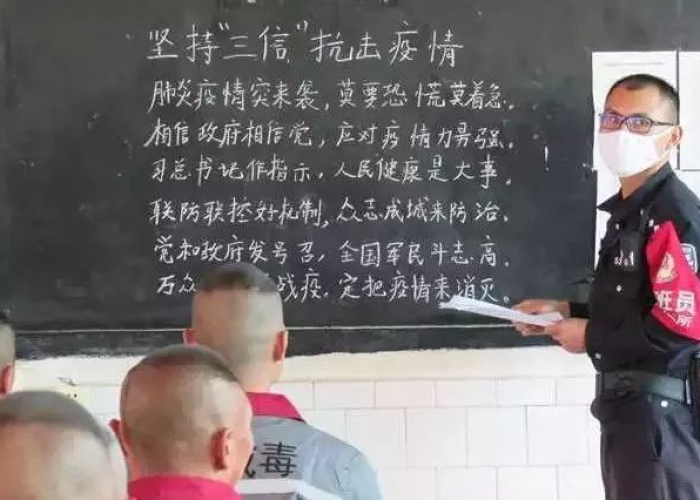 坚持"三信"抗击疫情
肺炎疫情突来袭，莫要恐慌莫着急。
相信政府相信党，应对疫情力强。
习总书记作指示，人民健康是大事。
联防联控好机制，众志成城来防治。
党和政府发号召，全国军民斗志高。
万众战疫，定把疫情来消灭。
班员
所
戒毒